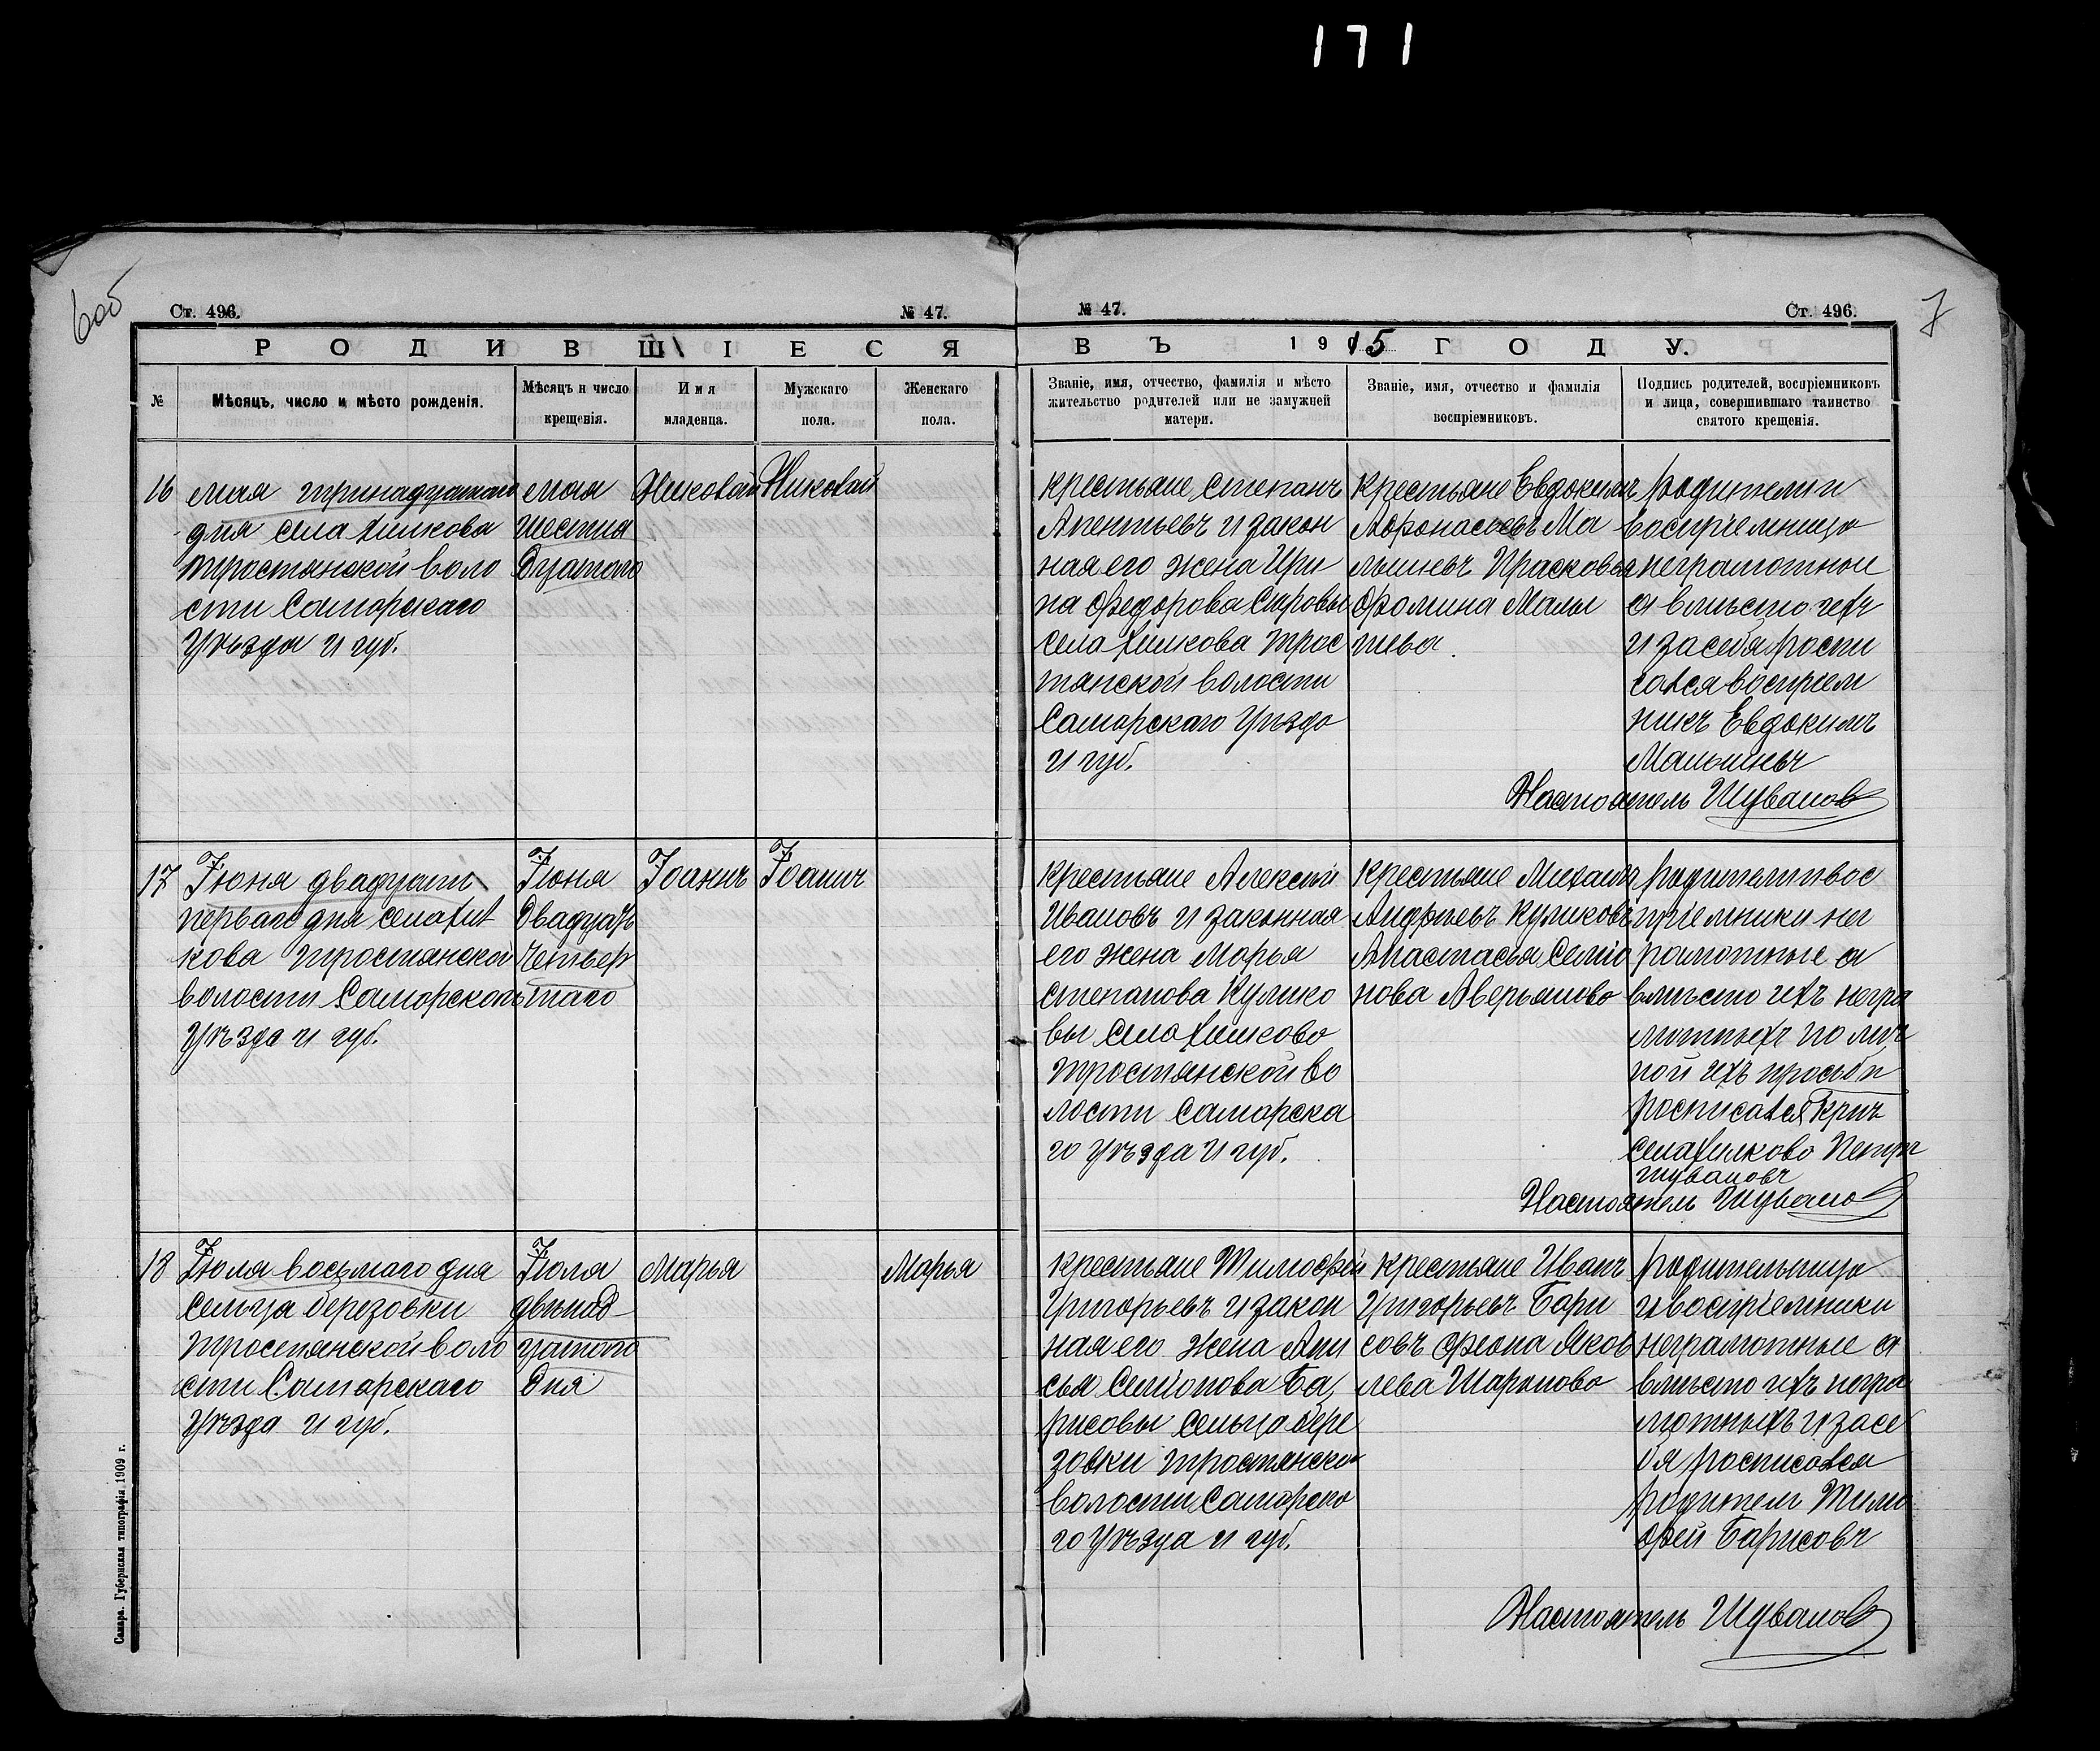 171
6об
7
Ст. 496. № 47.
№ 47. Ст. 496.
РОДИВШІЕСЯ
ВЪ 1915 ГОДУ.
№
Мѣсяцъ, число и мѣсто рожденія.
Мѣсяцъ и число
крещенія.
Имя
младенца.
Мужскаго
пола.
Женскаго
пола.
Званіе, имя, отчество, фамилія и мѣсто
жительство родителей или не замужней
матери.
Званіе, имя, отчество и фамилія
воспріемниковъ.
Подпись родителей, воспріемниковъ
и лица, совершившаго таинство
святого крещенія.
16
мая тринадцатаго
дня села Хилкова
тростянской воло
сти Самарскаго
Уѣзда и губ.
мая
шестна
дцатаго
Николай
Николай
крестьяне Степанъ
и закон
ная его жена Ири
на Федорова
села Хилкова трос
тянской волости
Самарскаго Уѣзда
и губ.
Крестьяне Евдокимъ
Афонасьевъ Ма
лышевъ Прасковья
Фомина Малы
шева.
родители и
воспріемница
неграмотныи
а вмѣсто ихъ
и за себя роспи
сался воспріем
никъ Евдокимъ
Малышевъ
Настоятель Шувалов
17
Іюня двадцати
перваго дня села Хил
кова тростянской
волости Самарскаго
Уѣзда и губ.
Іюня
двадцать
четвер
таго
Іоаннъ
Іоаннъ
крестьяне Алексѣй
Ивановъ и законная
его жена Марья
степанова Кулико
вы села Хилково
тростянской во
лости Самарска
го Уѣзда и губ.
Крестьяне Михаилъ
Андреевъ Куликовъ
Анастасья Семіо
нова Аверьянова
родители и вос
пріемники нег
рамотные а
вмѣсто ихъ негра
мотныхъ по лич
ной ихъ просьби
росписался крич
села Хилково Петръ
шуваловъ
Настоятель Шувалов
18
Іюля восьмаго дня
сельца березовки
тростянской воло
сти Самарскаго
Уѣзда и губ.
Іюля
двѣнад
цатаго
дня
Марья
Марья
крестьяне Тимофей
Григорьевъ и закон
ная его жена Ани
сья Семіонова Ба
рисовы сельца бере
зовки тростянской
волости Самарска
го Уѣзда и губ.
крестьяне Иванъ
Григорьевъ Бари
совъ Феона Яков
лева Шарыпова
родительница
и воспріемники
неграмотные а
вмѣсто ихъ негра
мотныхъ и за се
бя росписался
родитель Тимо
фей Барисовъ
Настоятель Шувалов
Самара. Губернская типографія 1909 г.